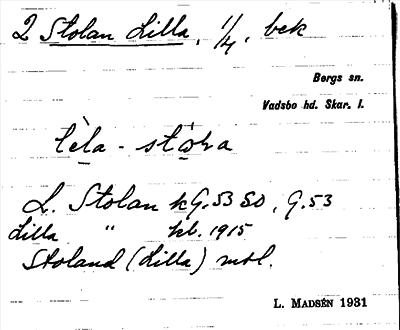 2 Stolan Lilla, 1/4, bek
Bergs sn.
Vadsbo hd. Skar. l.
L. Stolan kG.53 SO, G.53
Lilla " kb. 1915
Stoland (Lilla) mtl.
L. MADSÉN 1931